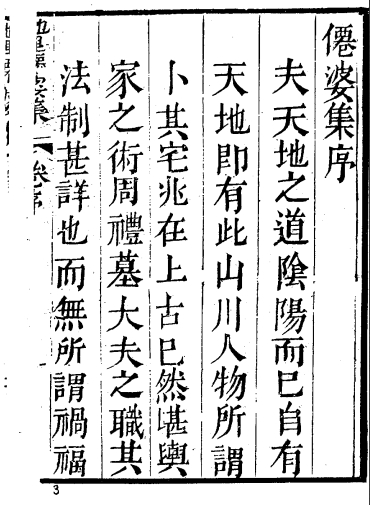 僊婆集序
夫天地之道陰陽而已自有
天地即有此山川人物所謂
卜其宅兆在上古已然堪輿
家之術周禮墓大夫之職其
法制甚詳也而無所謂禍福
婆集 卷序
3